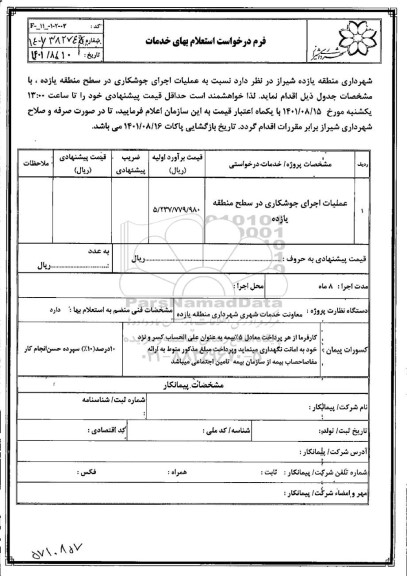 کد: F-۰۱۱-۰۱-۲۰۰۳
فرم درخواست استعلام بهای خدمات
شماره:
تاریخ: ۱۴۰۱/۸/۱۰
شهرداری منطقه یازده شیراز در نظر دارد نسبت به عملیات اجرای جوشکاری در سطح منطقه یازده ، با
مشخصات جدول ذیل اقدام نماید. لذا خواهشمند است حداقل قیمت پیشنهادی خود را تا ساعت ۱۳:۰۰
یکشنبه مورخ ۱۴۰۱/۰۸/۱۵ با یکماه اعتبار قیمت به این سازمان اعلام فرمایید، تا در صورت صرفه و صلاح
شهرداری شیراز برابر مقررات اقدام گردد. تاریخ بازگشایی پاکات ۱۴۰۱/۰۸/۱۶ می باشد.
ردیف مشخصات پروژه/ خدمات درخواستی قیمت برآورد اولیه (ریال) ضریب پیشنهادی قیمت پیشنهادی (ریال) ملاحظات
۱ عملیات اجرای جوشکاری در سطح منطقه یازده ۵/۲۳۷/۷۷۹/۹۸۰
قیمت پیشنهادی به حروف : ......ریال به عدد ......ریال
مدت اجرا : ۸ ماه محل اجرا :
دستگاه نظارت پروژه : معاونت خدمات شهری شهرداری منطقه یازده مشخصات فنی منضم به استعلام بها : دارد
کسورات پیمان : کارفرما از هر پرداخت معادل ۵٪بیمه به عنوان علی الحساب کسر و نزد
خود به امانت نگهداری مینماید وپرداخت مبلغ مذکور منوط به ارائه
مفاصاحساب بیمه از سازمان بیمه تامین اجتماعی میباشد
۱۰درصد(۱۰٪) سپرده حسن انجام کار
مشخصات پیمانکار
نام شرکت/ پیمانکار : شماره ثبت/ شناسنامه :
تاریخ ثبت/ تولد: شناسه/ کد ملی : کد اقتصادی :
آدرس شرکت/ پیمانکار :
شماره تلفن شرکت/ پیمانکار : ثابت : همراه : فکس :
مهر و امضاء شرکت/ پیمانکار :
ParsNamadData